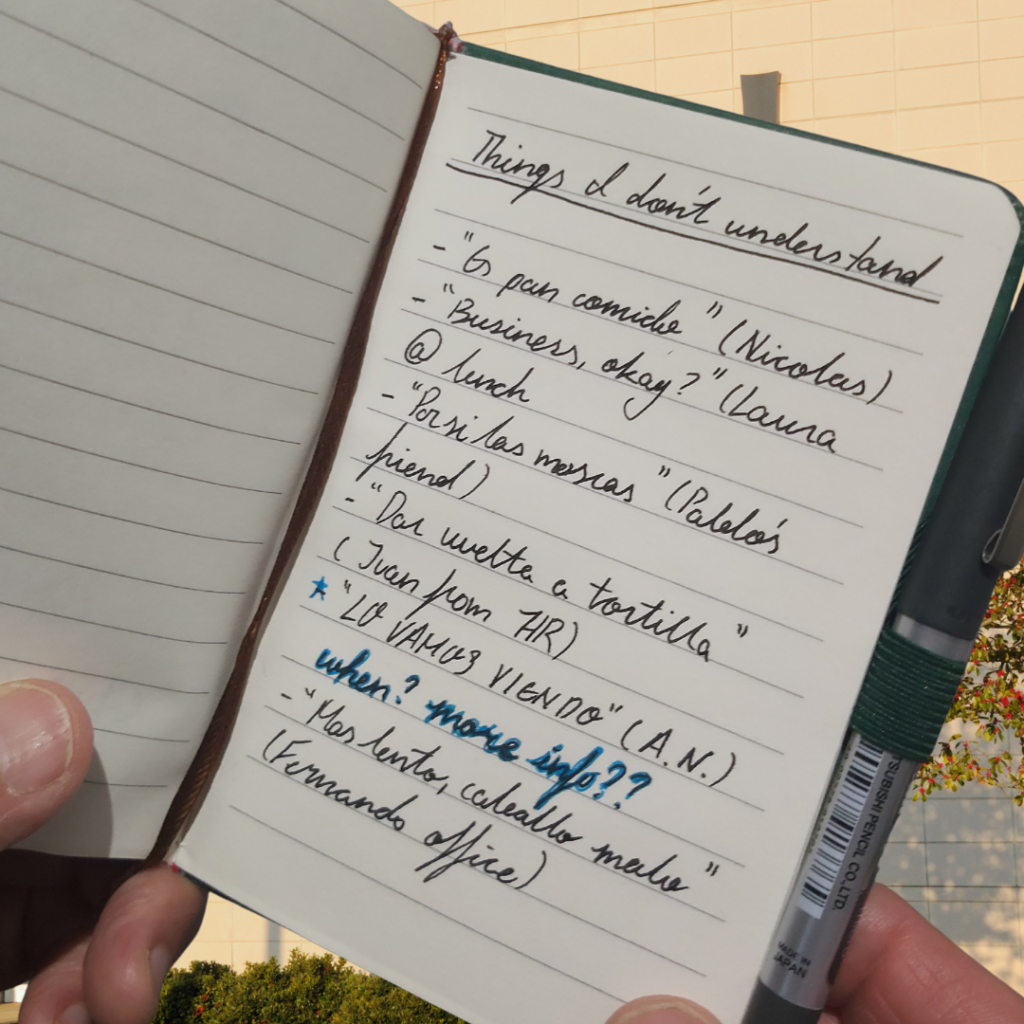 Things I don't understand
- "Es pan comido" (Nicolas)
- "Business, okay?" (Laura
@ lunch
- "Por si las moscas" (Pablo's
friend)
- "Dar vuelta a tortilla"
(Juan from HR)
* "LO VAMOS VIENDO" (A.N.)
when? more info??
- "Mas lento, caballo malo"
(Fernando office)
TSUBISHI PENCIL CO., LTD.
MADE IN
JAPAN